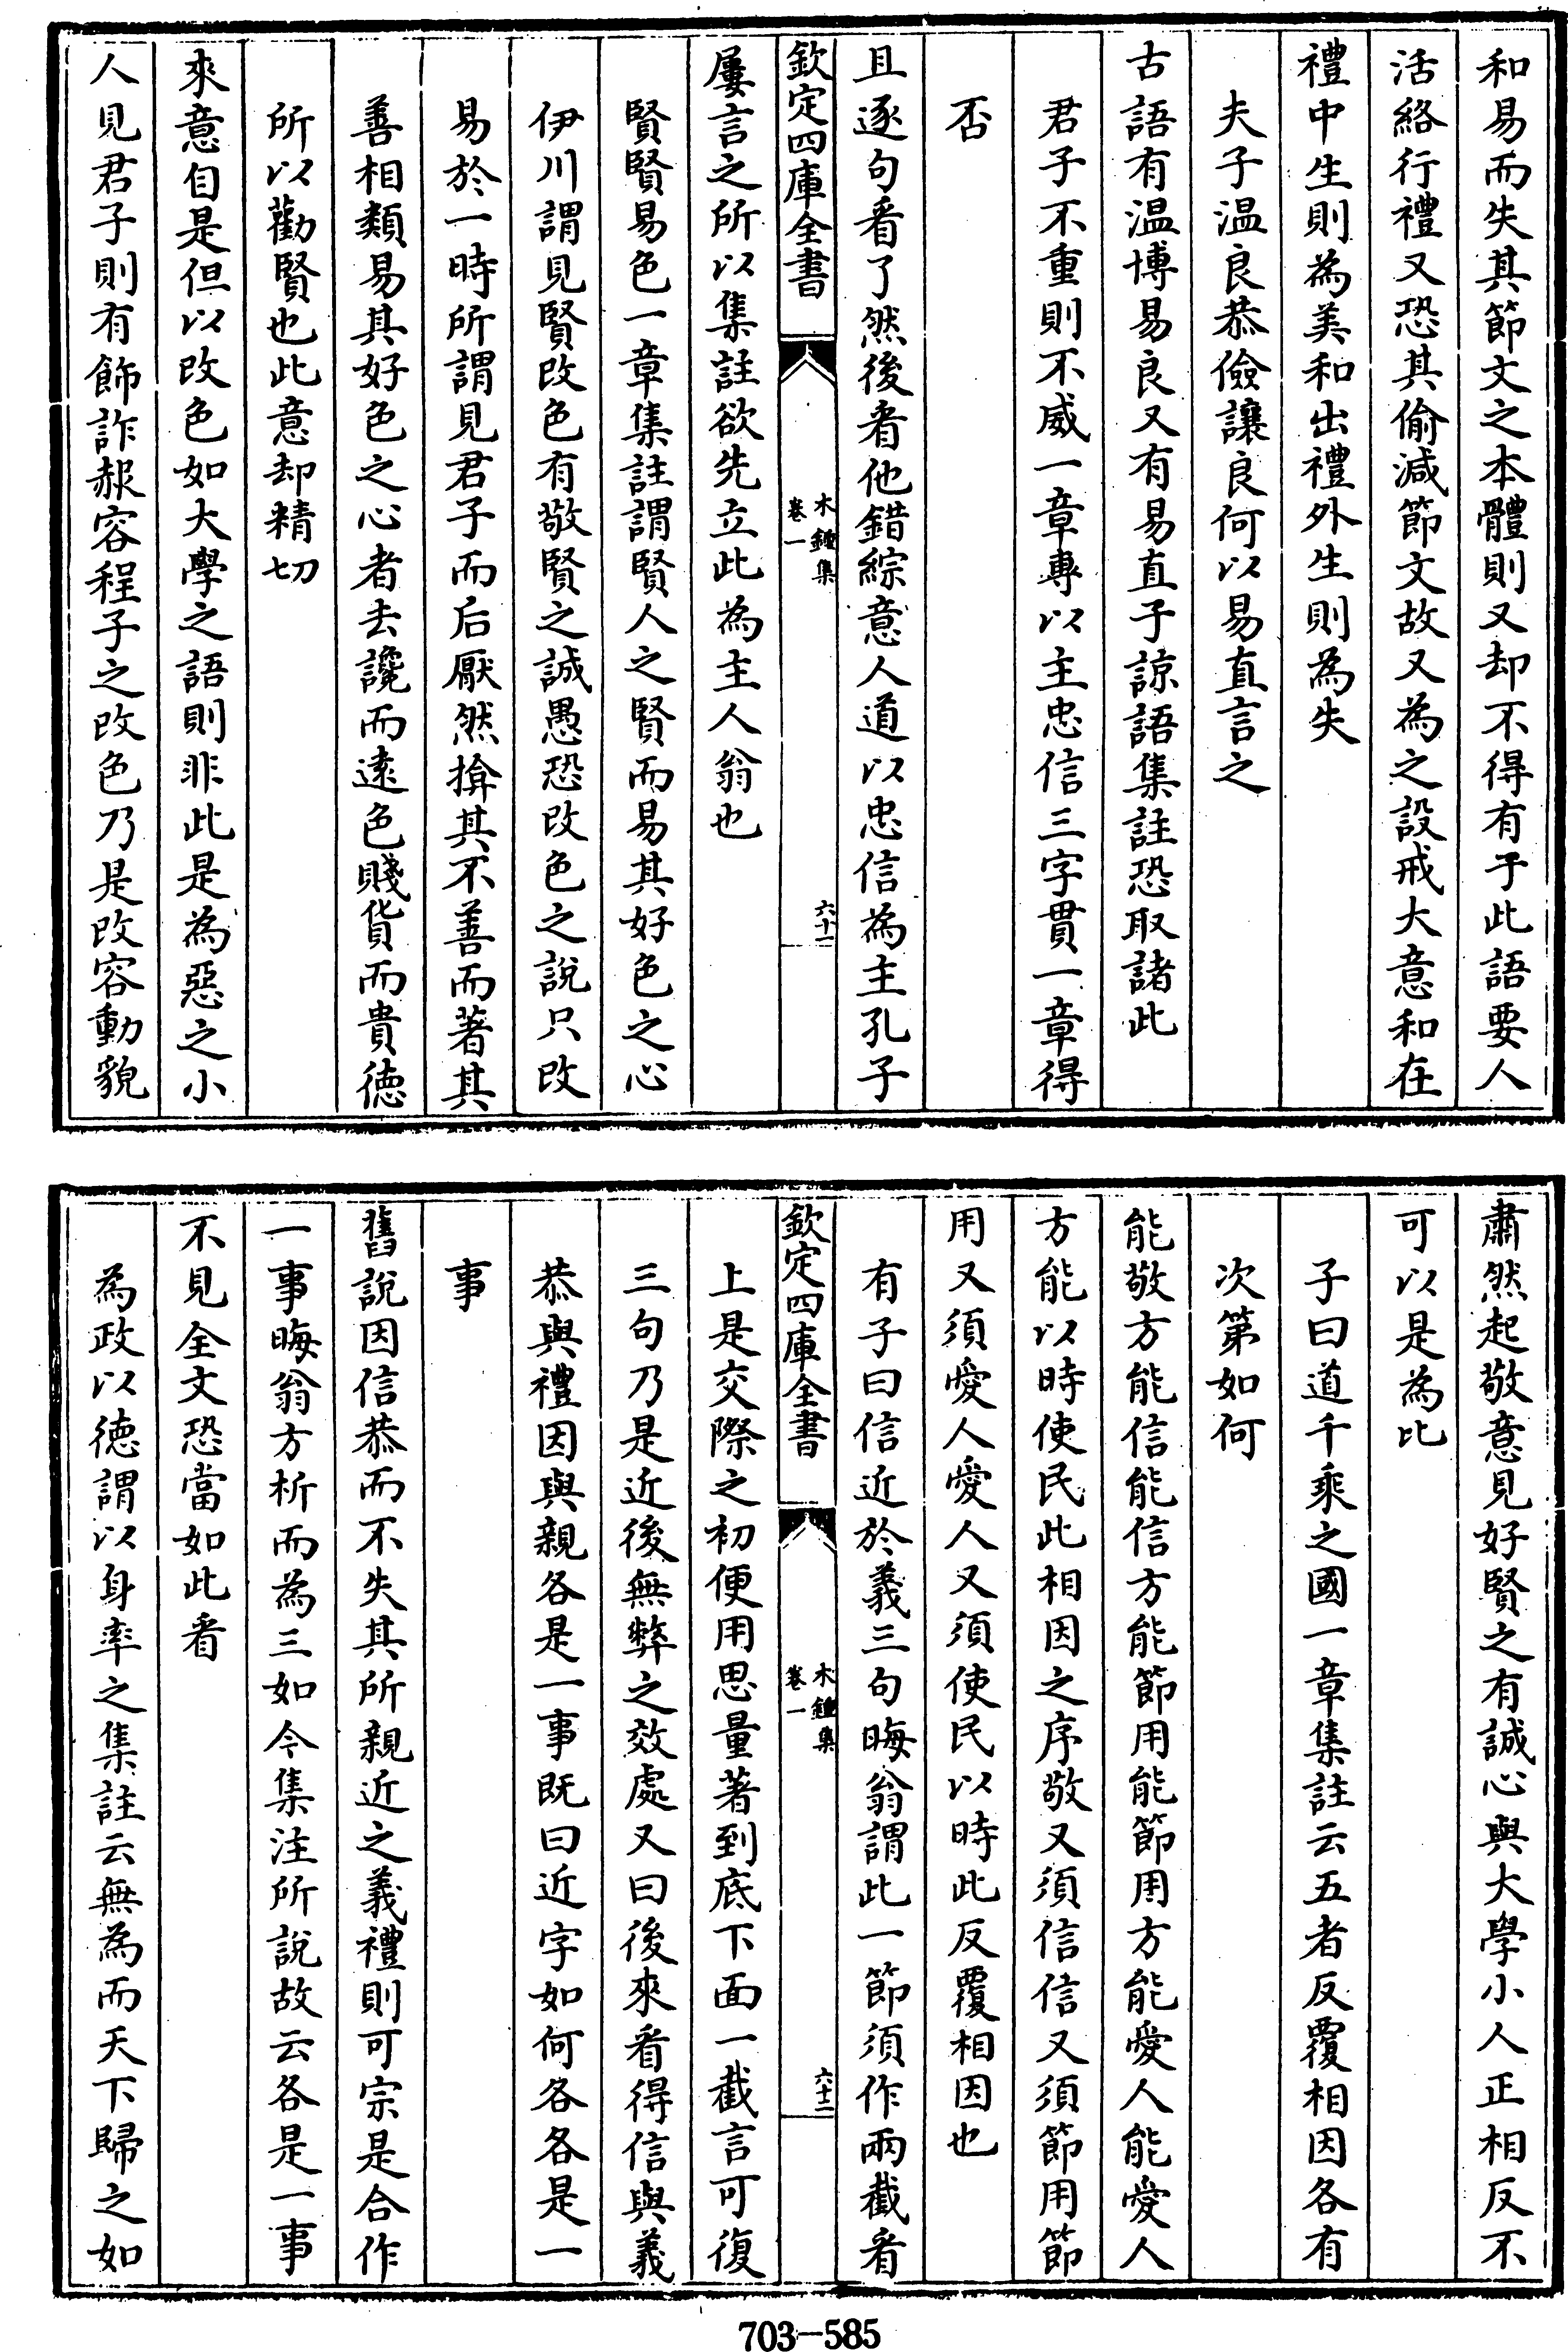 和易而失其節文之本體則又却不得有子此語要人
活絡行禮又恐其偷減節文故又為之設戒大意和在
禮中生則為美和出禮外生則為失
夫子温良恭儉讓良何以易直言之
古語有温博易良又有易直子諒語集註恐取諸此
君子不重則不威一章專以主忠信三字貫一章得
否
且逐句看了然後看他錯綜意人道以忠信為主孔子
欽定四庫全書
木鐘集
卷一
六十一
屢言之所以集註欲先立此為主人翁也
賢賢易色一章集註謂賢人之賢而易其好色之心
伊川謂見賢改色有敬賢之誠愚恐改色之說只改
易於一時所謂見君子而后厭然揜其不善而著其
善相類易其好色之心者去讒而遠色賤貨而貴德
所以勸賢也此意却精切
來意自是但以改色如大學之語則非此是為惡之小
人見君子則有飾詐赧容程子之改色乃是改容動貌
肅然起敬意見好賢之有誠心與大學小人正相反不
可以是為比
子曰道千乘之國一章集註云五者反覆相因各有
次第如何
能敬方能信能信方能節用能節用方能愛人能愛人
方能以時使民此相因之序敬又須信信又須節用節
用又須愛人愛人又須使民以時此反覆相因也
有子曰信近於義三句晦翁謂此一節須作兩截看
欽定四庫全書
木鐘集
卷一
六十二
上是交際之初便用思量著到底下面一截言可復
三句乃是近後無弊之效處又曰後來看得信與義
恭與禮因與親各是一事既曰近字如何各各是一
事
舊說因信恭而不失其所親近之義禮則可宗是合作
一事晦翁方析而為三如今集注所說故云各是一事
不見全文恐當如此看
為政以德謂以身率之集註云無為而天下歸之如
703-585